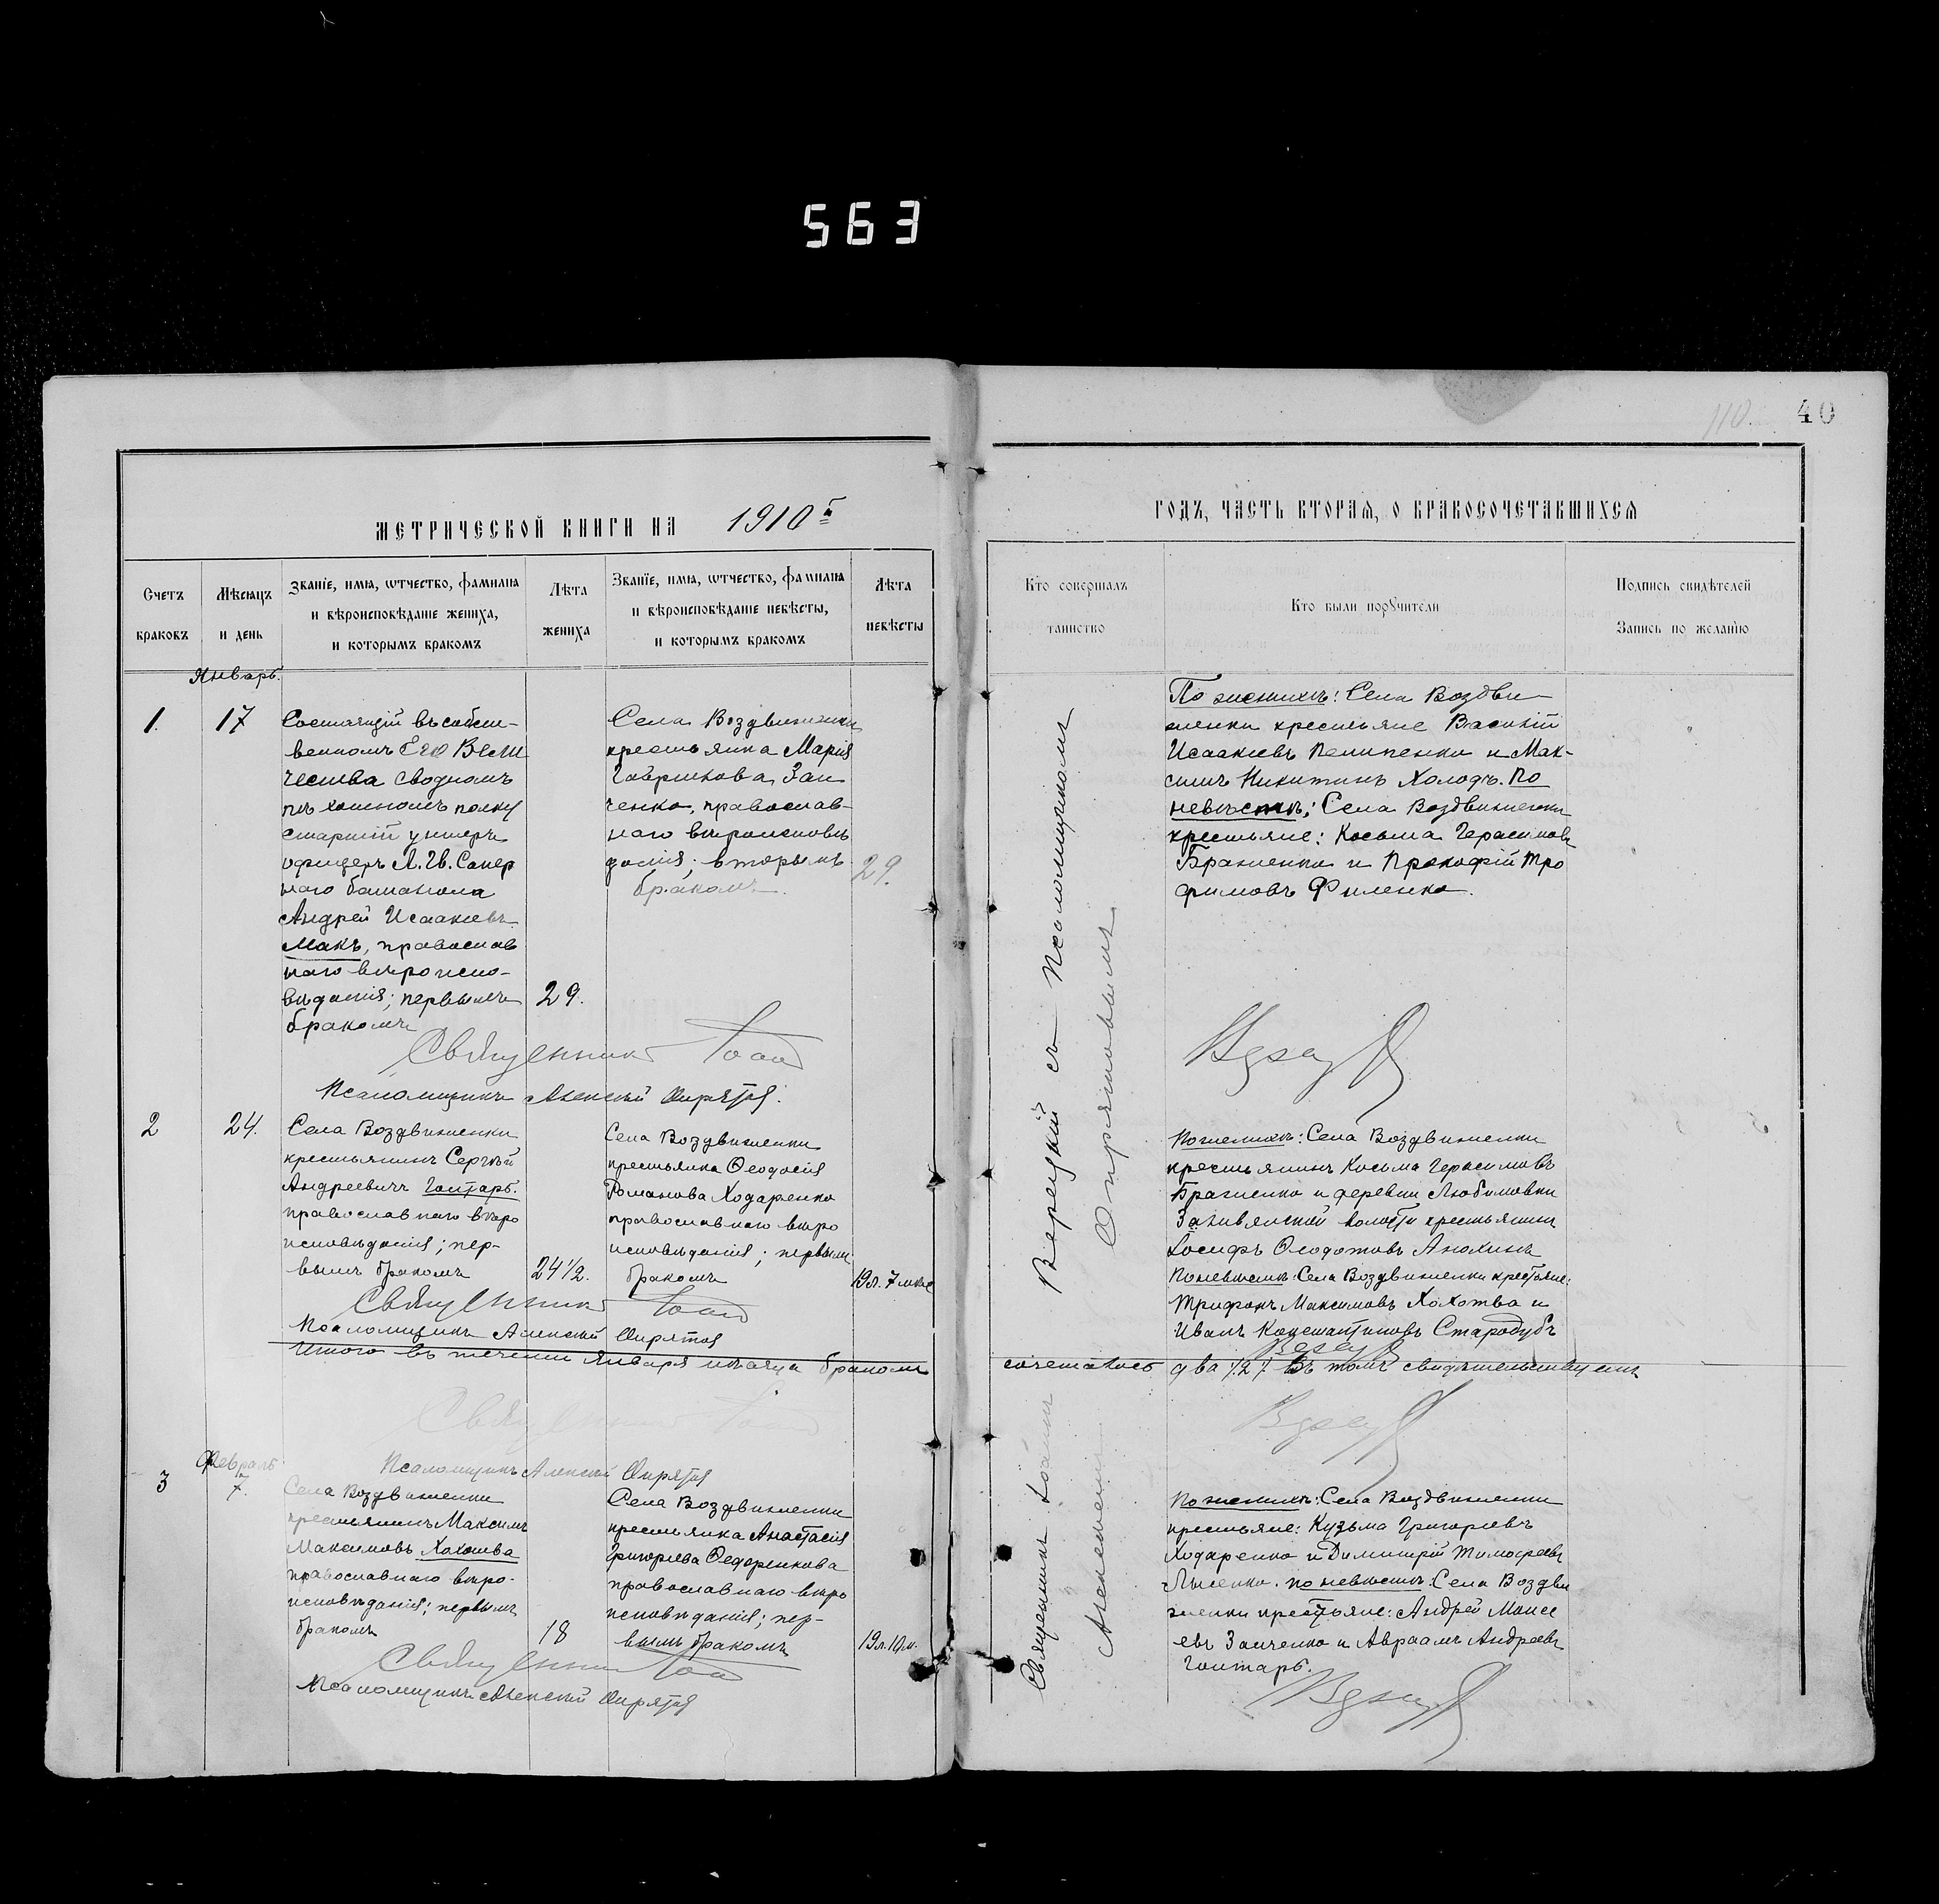 563
110.
40
МЕТРИЧЕСКОЙ КНИГИ НА 1910 г.
ГОДЪ, ЧАСТЬ ВТОРАЯ, О БРАКОСОЧЕТАВШИХСЯ
Счетъ
браковъ
Мѣсяцъ
и день
Званіе, имя, ѡтчество, фамилія
и вѣроисповѣданіе жениха,
и которымъ бракомъ
Лѣта
жениха
Званіе, имя, ѡтчество, фамилія
и вѣроисповѣданіе невѣсты,
и которымъ бракомъ
Лѣта
невѣсты
Кто совершалъ
таинство
Кто были порꙋчители
Подпись свидѣтелей
Запись по желанію
Январь.
1.
17
Состоящій въ собст-
венномъ Его Вели
чества Сводномъ
пѣхотномъ полку
старшій унтеръ
офицеръ Л. Гв. Сапер
наго баталіона
Андрей Исаакіевъ
Макъ, православ
наго вѣроиспо-
вѣданія; первымъ
бракомъ
29.
Села Воздвиженки
крестьянка Марія
Гавриилова Заи
ченко, православ-
наго вѣроисповѣ
данія; вторымъ
бракомъ.
29.
По женихѣ: Села Воздви
женки крестьяне Василій
Исаакіевъ Пелипенко и Мак-
симъ Никитинъ Холодъ. По
невѣстѣ: Села Воздвиженки
крестьяне: Косьма Герасимовъ
Браженко и Прокофій Тро
фимовъ Филенко.
Священникъ Іоан
Псаломщикъ Алексѣй Опрятов
2
24.
Села Воздвиженки
крестьянинъ Сергѣй
Андреевичъ Гонтарь.
православнаго вѣро
исповѣданія; пер-
вымъ бракомъ
24 1/2.
Села Воздвиженки
крестьянка Ѳеодосія
Романова Ходаренко
православнаго вѣро
исповѣданія; первымъ
бракомъ
19 л. 7 мѣс
По женихѣ: Села Воздвиженки
крестьянинъ Косьма Герасимовъ
Браженко и деревни Любимовки
волости крестьянинъ
Іосифъ Ѳеодотовъ Анохинъ
По невѣстѣ: Села Воздвиженки крестьяне:
Трифонъ Максимовъ Хохотва и
Иванъ Константиновъ Стародубъ
Священникъ Іоан
Псаломщикъ Алексѣй Опрятов
Итого въ теченіи Января мѣсяца бракомъ
сочеталось два /:2:/ Въ томъ свидѣтельствуемъ
Священникъ Іоан
Псаломщикъ Алексѣй Опрятов
Февраль
3
7.
Села Воздвиженки
крестьянинъ Максимъ
Максимовъ Хохотва
православнаго вѣро-
исповѣданія; первымъ
бракомъ
18
Села Воздвиженки
крестьянка Анастасія
Григорьева Ѳедоренкова
православнаго вѣро
исповѣданія; пер-
вымъ бракомъ
19 л. 10 м.
По женихѣ: Села Воздвиженки
крестьяне: Кузьма Григорьевъ
Ходаренко и Димитрій Тимофеевъ
Лысенко. по невѣстѣ: Села Воздви
женки крестьяне: Андрей Моисе
евъ Заиченко и Авраамъ Андреевъ
Гонтарь.
Священникъ Іоан
Псаломщикъ Алексѣй Опрятов
Священникъ Іоаннъ Верецкій съ Псаломщикомъ
Алексѣемъ Опрятовымъ